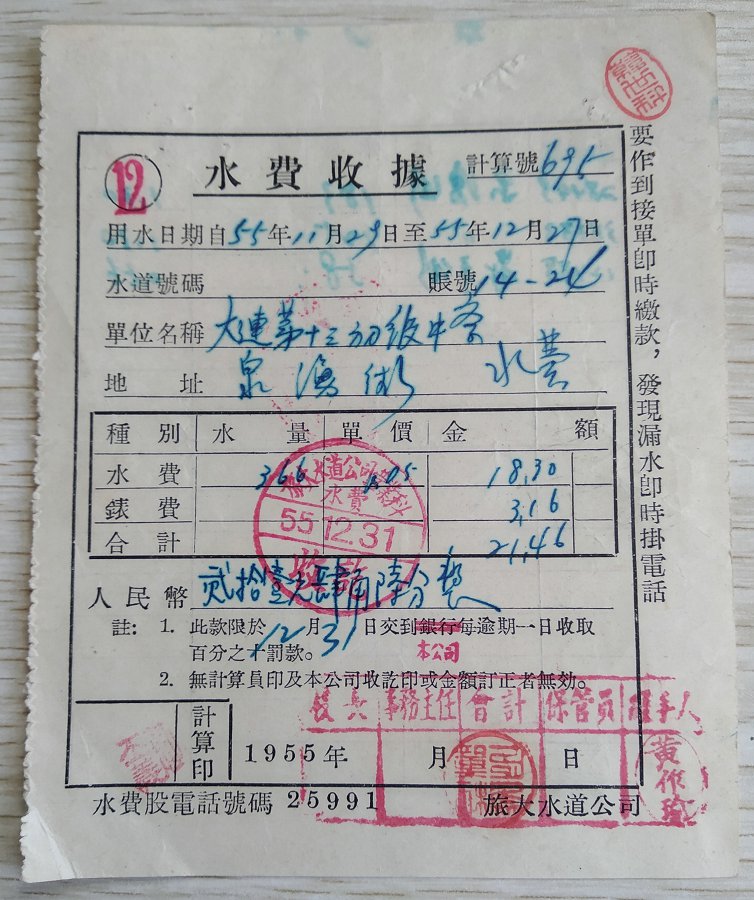 12 水費收據 計算號 695
用水日期自55年11月29日至55年12月27日
水道號碼 賬號 14-24
單位名稱 大連第十三初級中學
地址 泉涌街 水费
種別 水量 單價 金額
水費 366 .05 18.30
錶費 3.16
合計 21.46
旅大水道公司
水費
55.12.31
人民幣 貳拾壹元肆角陸分整
註: 1. 此款限於12月31日交到銀行每逾期一日收取
本公司
百分之十罰款。
2. 無計算員印及本公司收訖印或金額訂正者無効。
校長 事務主任 會計 保管員 經手人
黃作
計算印 1955年 月 日
水費股電話號碼 25991 旅大水道公司
要作到接單卽時繳款，發現漏水卽時掛電話